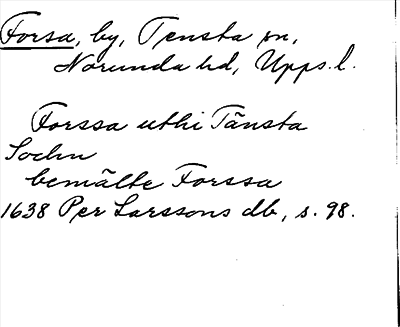 Forsa, by, Tensta sn,
Norunda hd, Upps. l.
Forssa uthi Tänsta
Sochn
bemälte Forssa
1638 Per Larssons db, s. 98.